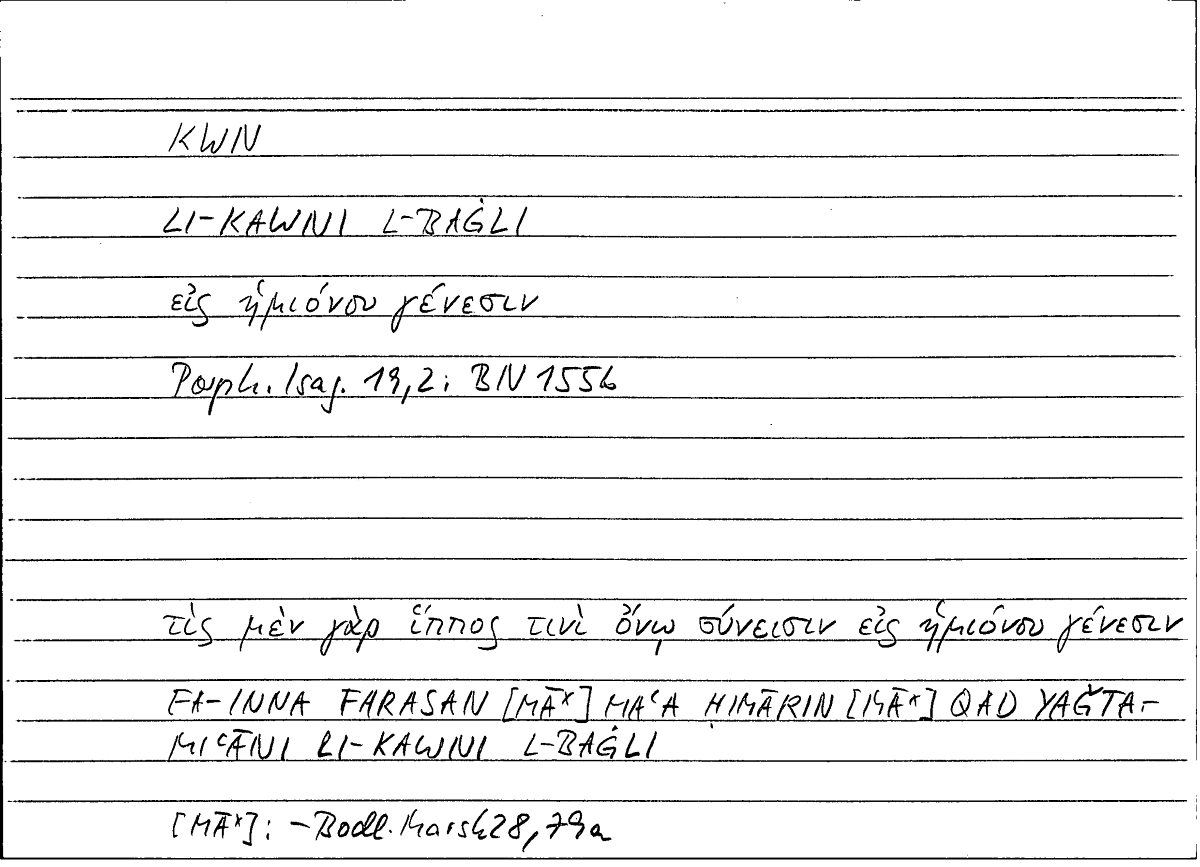 KWN
LI-KAWNI L-BAĠLI
εἰς ἡμιόνου γένεσιν
Porph. Isag. 19,2: BN 155b
τὶς μὲν γὰρ ἵππος τινὶ ὄνῳ σύνεισιν εἰς ἡμιόνου γένεσιν
FA-INNA FARASAN [MĀˣ] MAʿA ḤIMĀRIN [MĀˣ] QAD YAǦTA-
MIʿĀNI LI-KAWNI L-BAĠLI
[MĀˣ]: -Bodl. Marsh 28, 79a